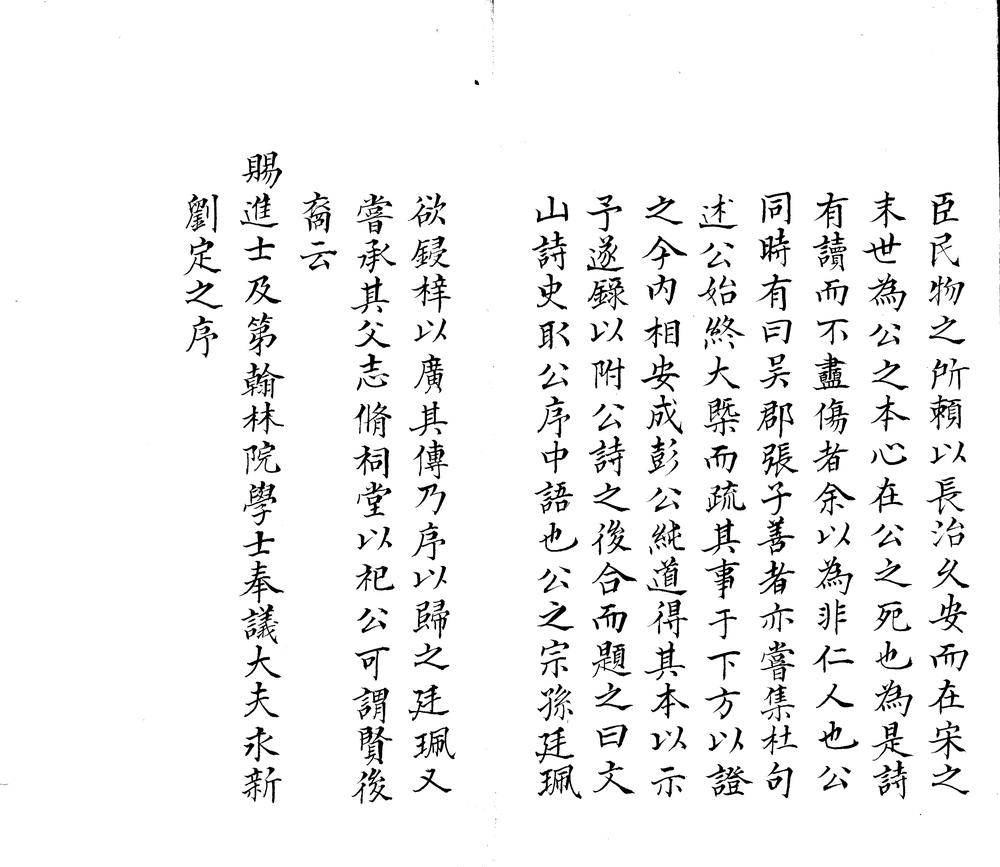 臣民物之所頼以長治久安而在宋之
末世為公之本心在公之死也為是詩
有讀而不盡傷者余以為非仁人也公
同時有曰吴郡張子善者亦嘗集杜句
述公始終大槩而疏其事于下方以證
之今内相安成彭公純道得其本以示
予遂録以附公詩之後合而題之曰文
山詩史取公序中語也公之宗孫廷珮
欲鋟梓以廣其傳乃序以歸之廷珮又
嘗承其父志脩祠堂以祀公可謂賢後
裔云
賜進士及第翰林院學士奉議大夫永新
劉定之序